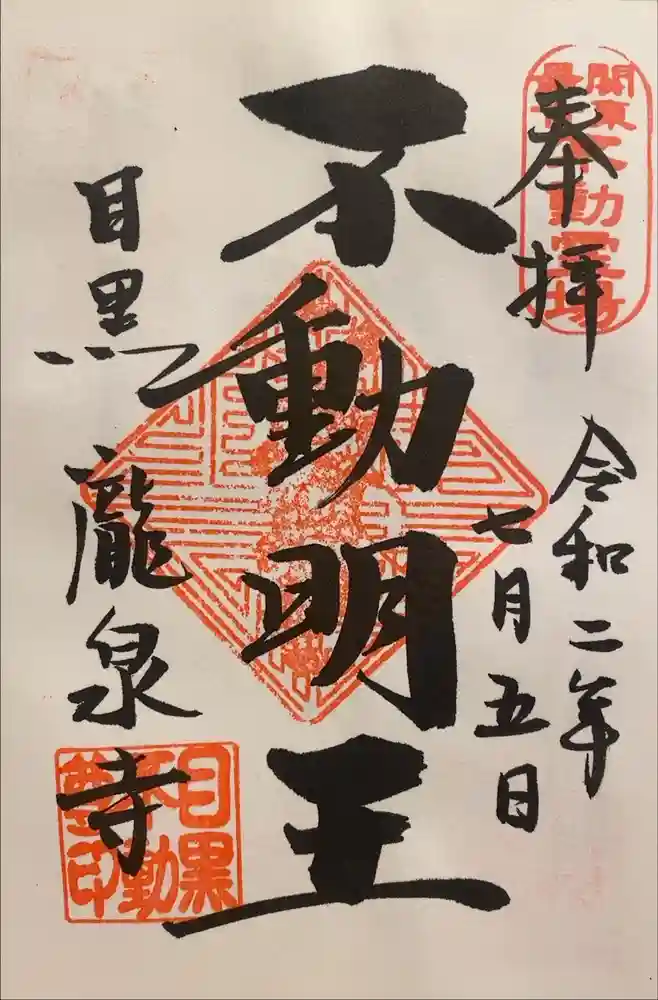 奉拝
令和二年
七月五日
不動明王
目黒
瀧泉寺
関東三十六不動霊場
目黒
不動
尊印